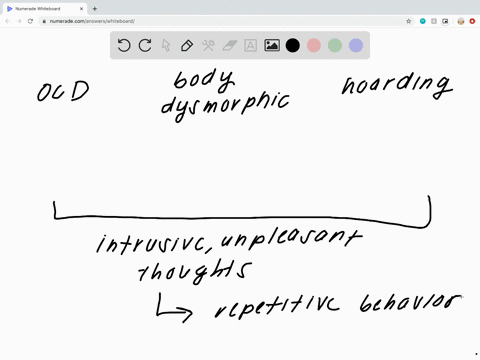 Numerade Whiteboard
numerade.com/answers/whiteboard/
OCD
body
dysmorphic
hoarding
intrusive, unpleasant
thoughts
repetitive behavior